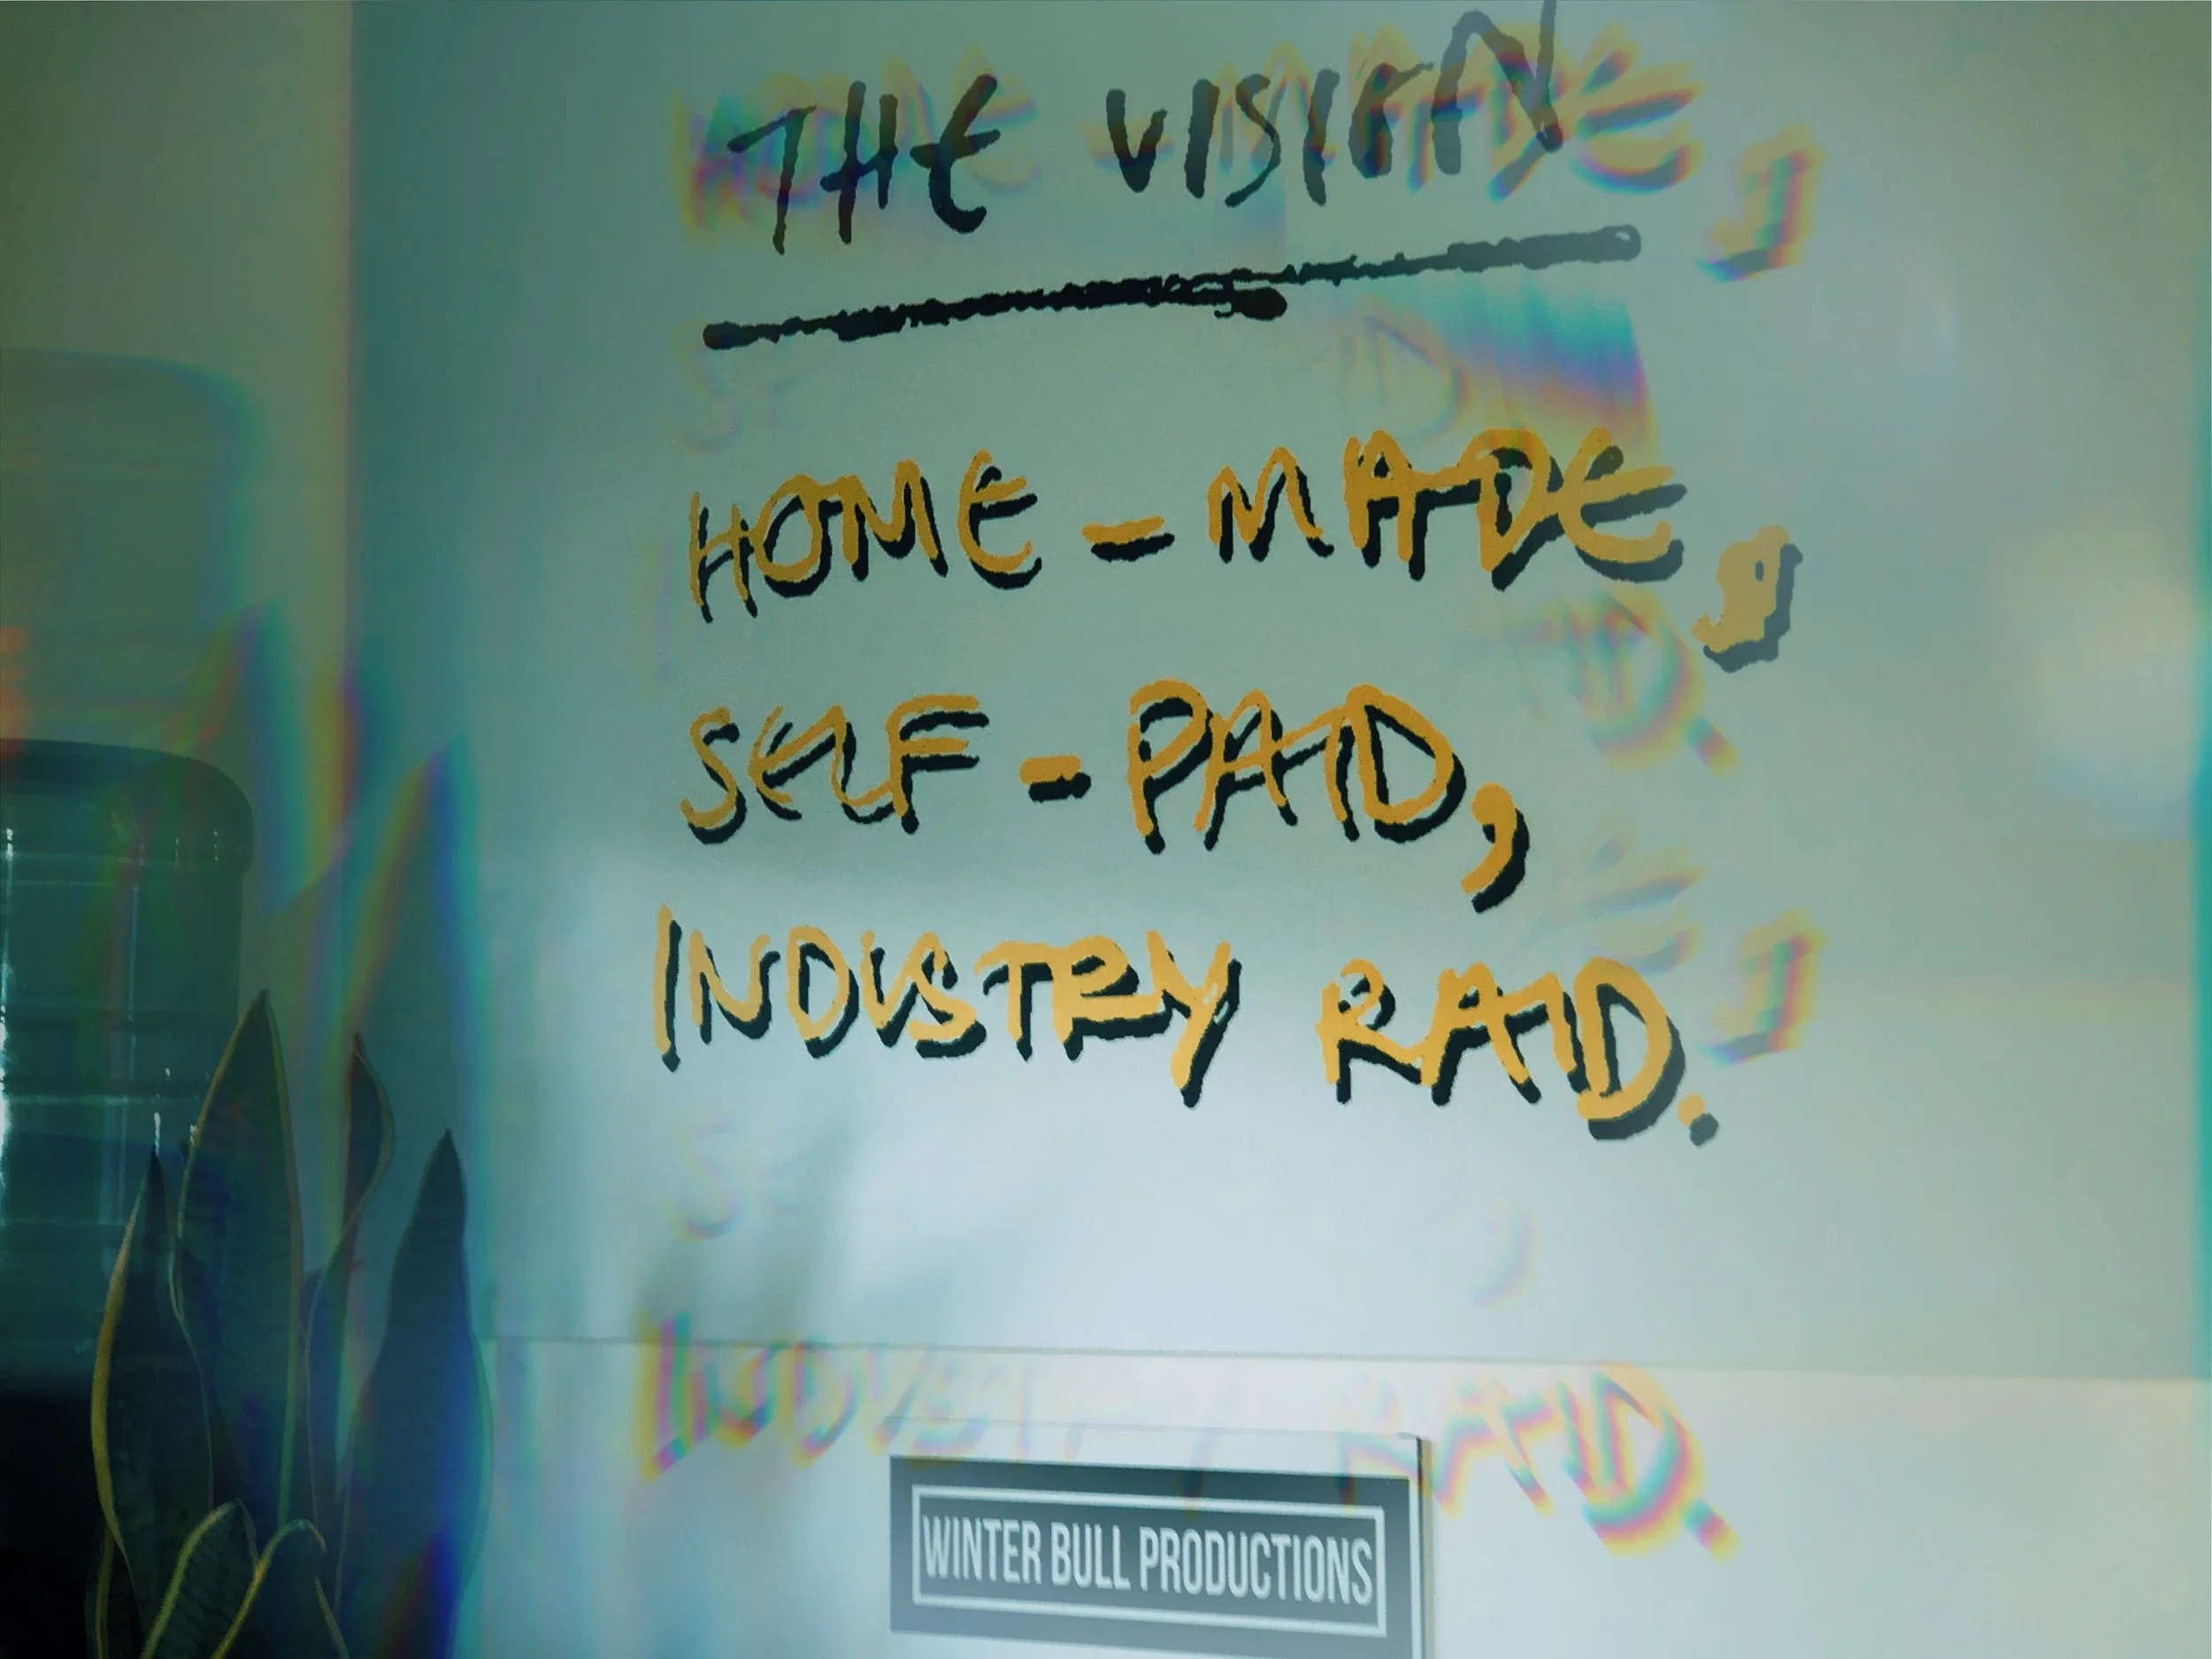 THE VISION
HOME-MADE,
SELF-PAID,
INDUSTRY RAID.
WINTER BULL PRODUCTIONS